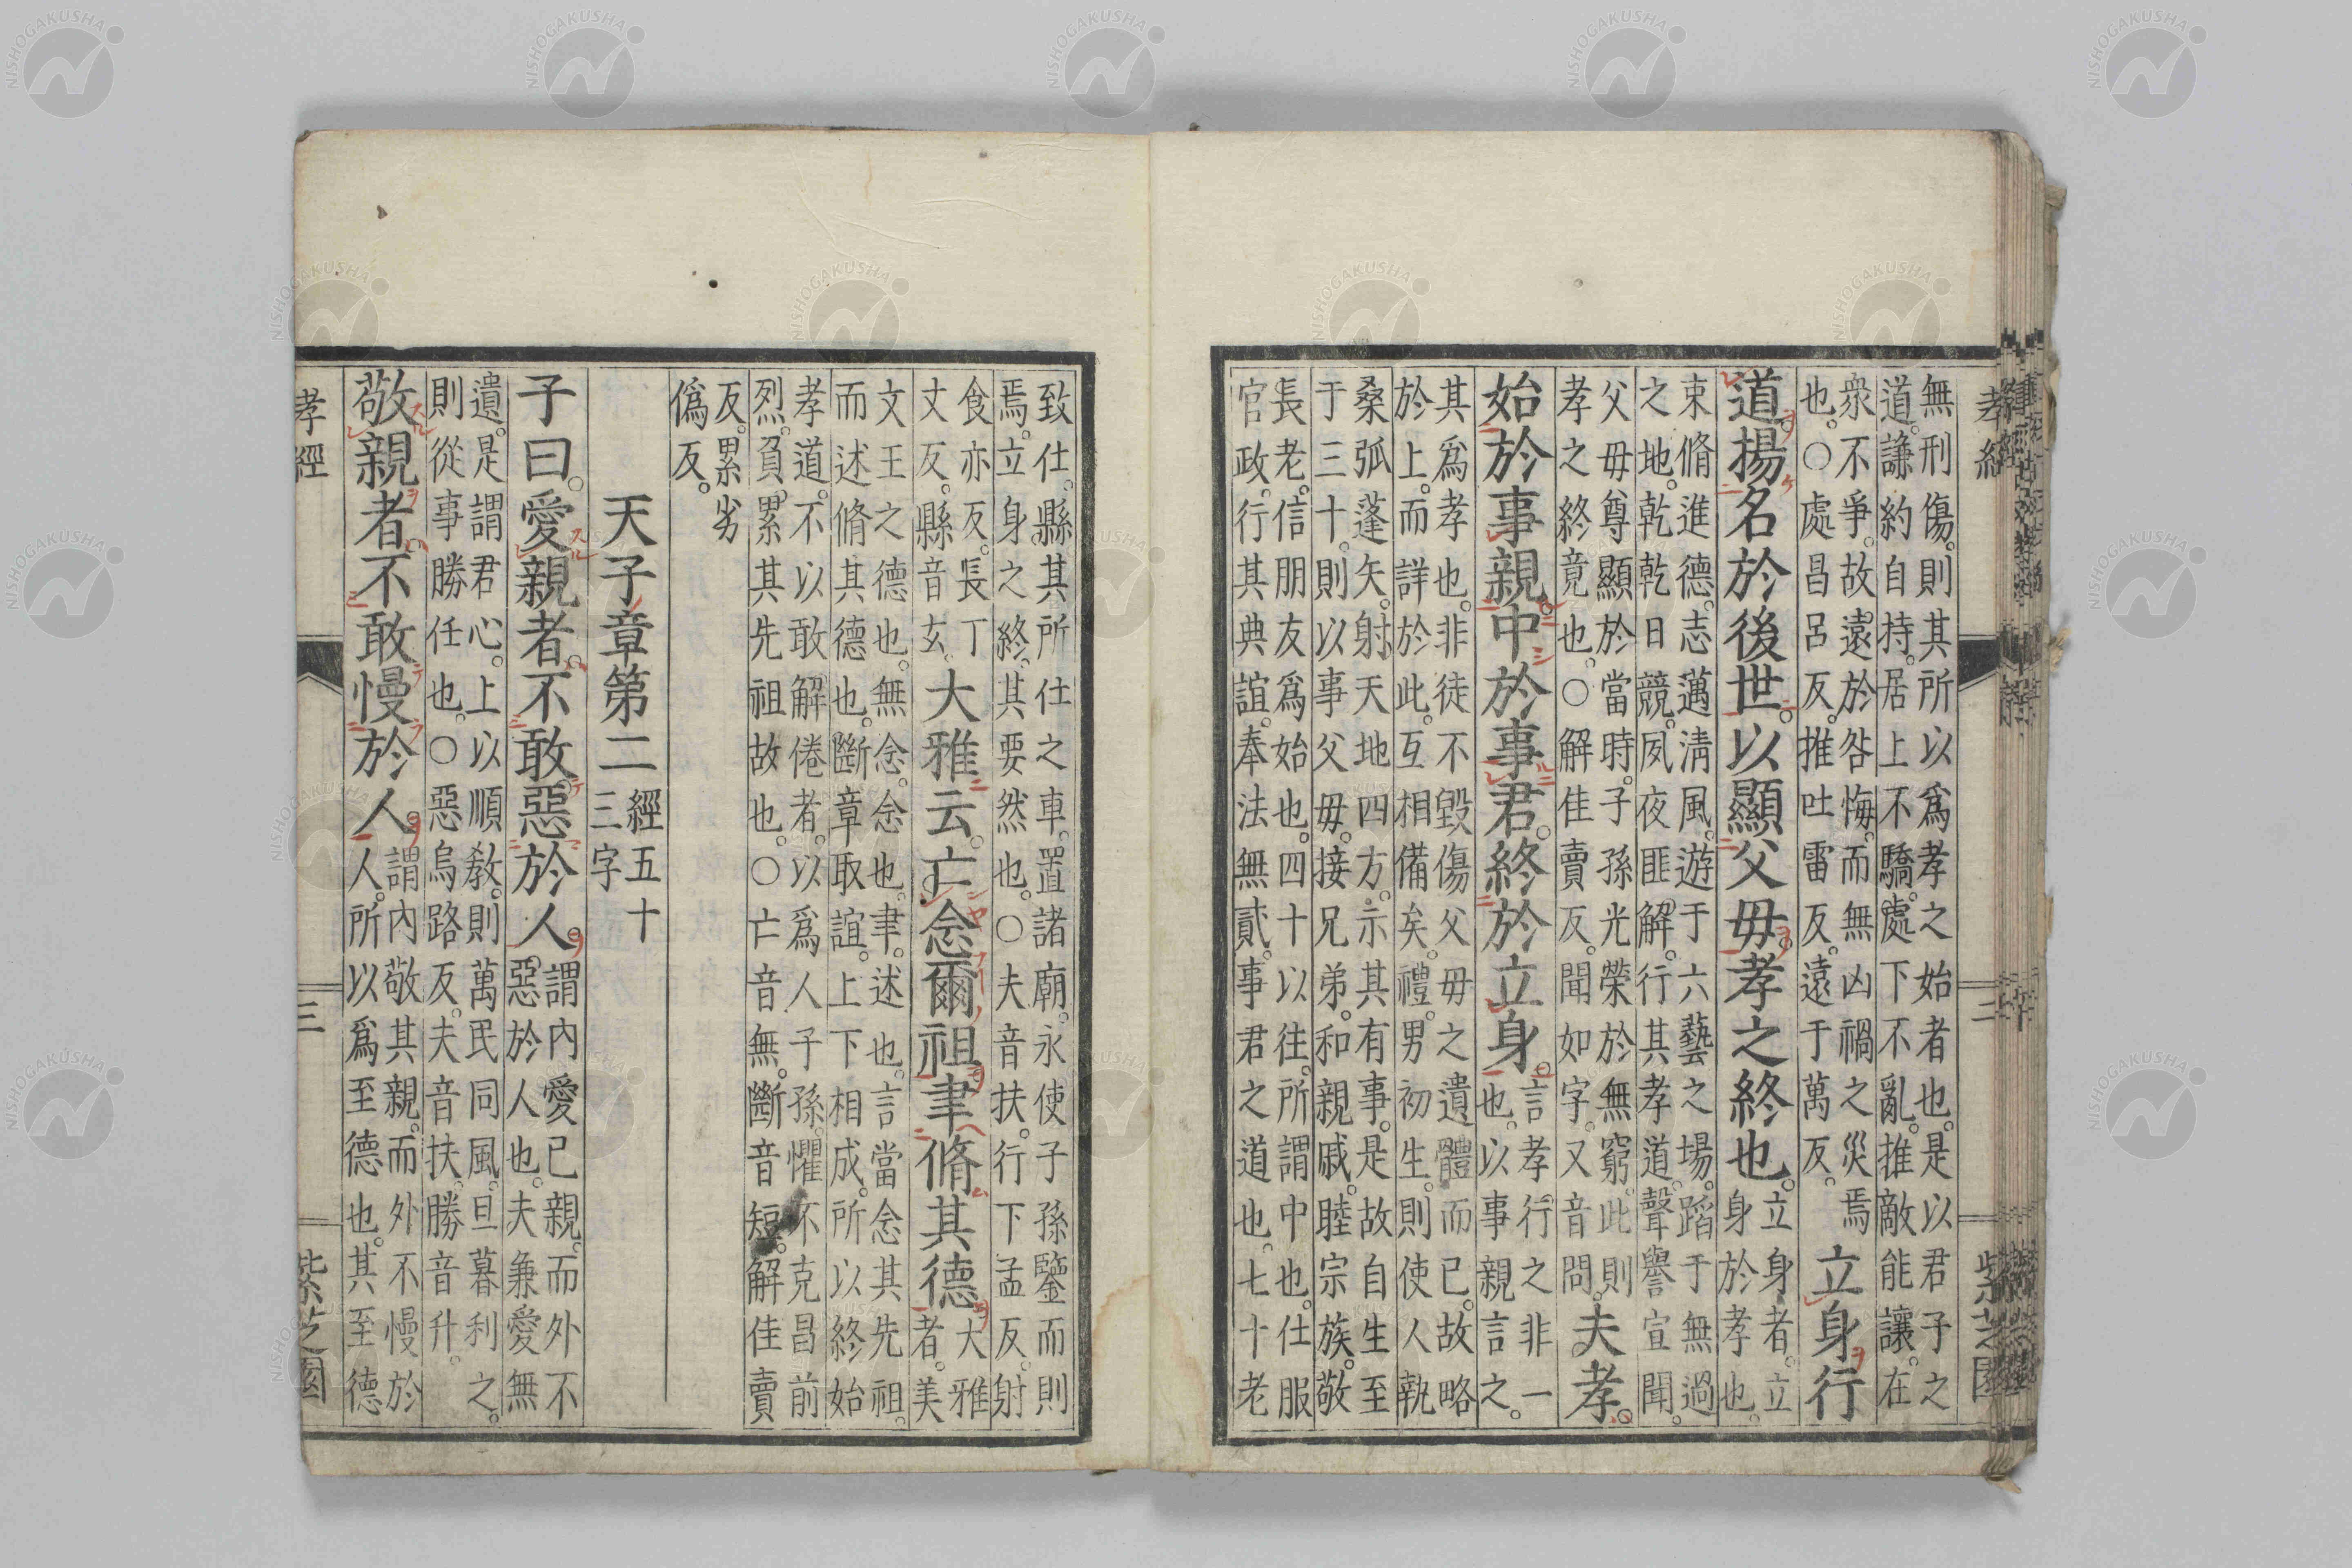 無刑傷。則其所以爲孝之始者也。是以君子之
道。謙約自持。居上不驕。處下不亂。推敵能讓。在
衆不爭。故遠於咎悔。而無凶禍之災焉
也。○處昌呂反。推吐雷反。遠于萬反。
立身行
道。揚名於後世。以顯父毋。孝之終也。
立身者。立
身於孝也。
束脩進德。志邁淸風。遊于六藝之場。蹈于無過
之地。乾乾日競。夙夜匪解。行其孝道。聲譽宣聞。
父毋尊顯於當時。子孫光榮於無窮。此則
孝之終竟也。○解佳賣反。聞如字。又音問。
夫孝。
始於事親。中於事君。終於立身。
言孝行之非一
也。以事親言之。
其爲孝也。非徒不毀傷父毋之遺體而已。故略
於上。而詳於此。互相備矣。禮。男初生。則使人執
桑弧蓬矢。射天地四方。示其有事。是故自生至
于三十。則以事父毋。接兄弟。和親戚。睦宗族。敬
長老。信朋友爲始也。四十以往。所謂中也。仕服
官政。行其典誼。奉法無貳。事君之道也。七十老
孝經
二
紫芝園
致仕。縣其所仕之車。置諸廟。永使子孫鑒而則
焉。立身之終。其要然也。○夫音扶。行下孟反。射
食亦反。長丁
丈反。縣音玄。
大雅云。亡念爾祖。聿脩其德。
大雅
者。美
文王之德也。無念。念也。聿。述也。言當念其先祖。
而述脩其德也。斷章取誼。上下相成。所以終始
孝道。不以敢解倦者。以爲人子孫。懼不克昌前
烈。負累其先祖故也。○亡音無。斷音短。解佳賣
反。累劣
僞反。
天子章第二
經五十
三字
子曰。愛親者。不敢惡於人。
謂內愛己親。而外不
惡於人也。夫兼愛無
遺。是謂君心。上以順敎。則萬民同風。旦暮利之。
則從事勝任也。○惡烏路反。夫音扶。勝音升。
敬親者。不敢慢於人。
謂內敬其親。而外不慢於
人。所以爲至德也。其至德
孝經
三
紫芝園
NISHOGAKUSHA